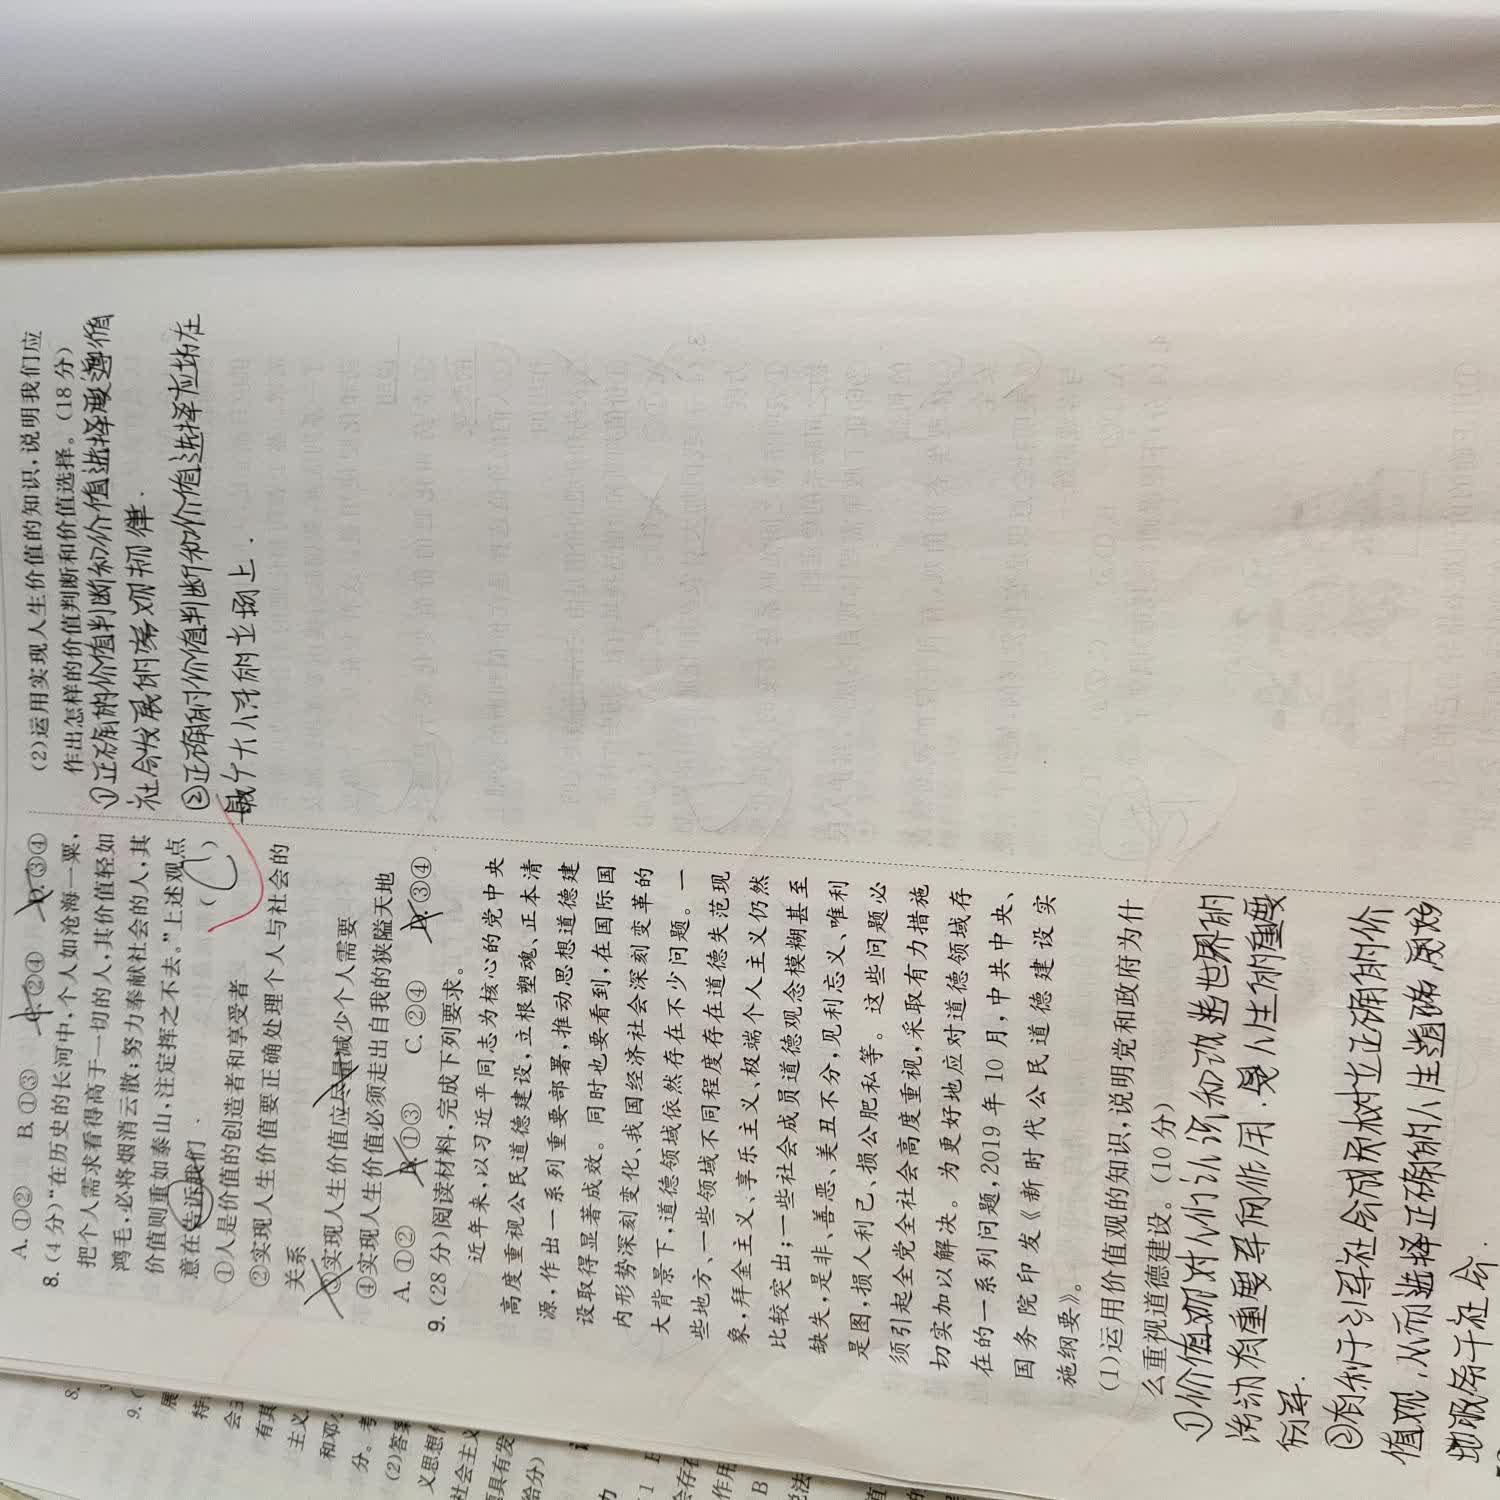 A.①② B.①③ C.②④ D.③④
8.(4分)“在历史的长河中,个人如沧海一粟,
把个人需求看得高于一切的人,其价值轻如
鸿毛,必将烟消云散;努力奉献社会的人,其
价值则重如泰山,注定挥之不去。”上述观点
意在告诉我们 ( C )
①人是价值的创造者和享受者
②实现人生价值要正确处理个人与社会的
关系
③实现人生价值应尽量减少个人需要
④实现人生价值必须走出自我的狭隘天地
A.①② B.①③ C.②④ D.③④
9.(28分)阅读材料,完成下列要求。
近年来,以习近平同志为核心的党中央
高度重视公民道德建设,立根塑魂、正本清
源,作出一系列重要部署,推动思想道德建
设取得显著成效。同时也要看到,在国际国
内形势深刻变化、我国经济社会深刻变革的
大背景下,道德领域依然存在不少问题。一
些地方、一些领域不同程度存在道德失范现
象,拜金主义、享乐主义、极端个人主义仍然
比较突出;一些社会成员道德观念模糊甚至
缺失,是非、善恶、美丑不分,见利忘义、唯利
是图,损人利己、损公肥私等。这些问题必
须引起全党全社会高度重视,采取有力措施
切实加以解决。为更好地应对道德领域存
在的一系列问题,2019年10月,中共中央、
国务院印发《新时代公民道德建设实
施纲要》。
(1)运用价值观的知识,说明党和政府为什
么重视道德建设。(10分)
①价值观对人们认识和改造世界的
活动有重要导向作用.是人生的重要
向导.
②有利于引导社会成员树立正确的价
值观,从而选择正确的人生道路,更好
地服务于社会.
(2)运用实现人生价值的知识,说明我们应
作出怎样的价值判断和价值选择。(18分)
①正确的价值判断和价值选择要遵循
社会发展的客观规律.
②正确的价值判断和价值选择应站在
最广大人民的立场上.
8.
9.(
展
特
会主
有其
主义
和邓小
分。考
(2)答案
义思想
社会主义
具有发
给分)